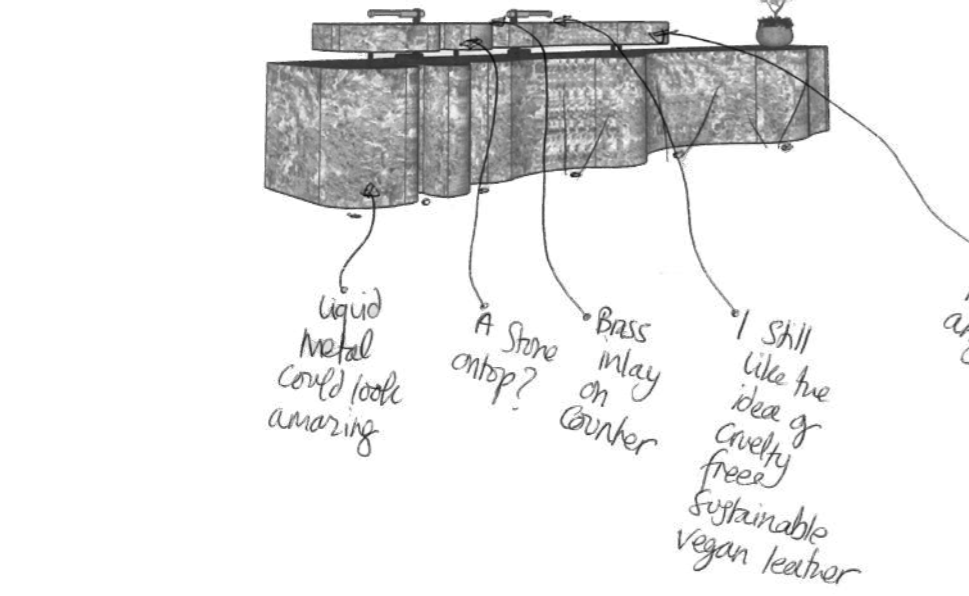 Liquid
Metal
Could look
amazing
A Stone
ontop?
Brass
inlay
on
Counter
I Still
Like the
idea of
Cruelty
free
Sustainable
vegan leather